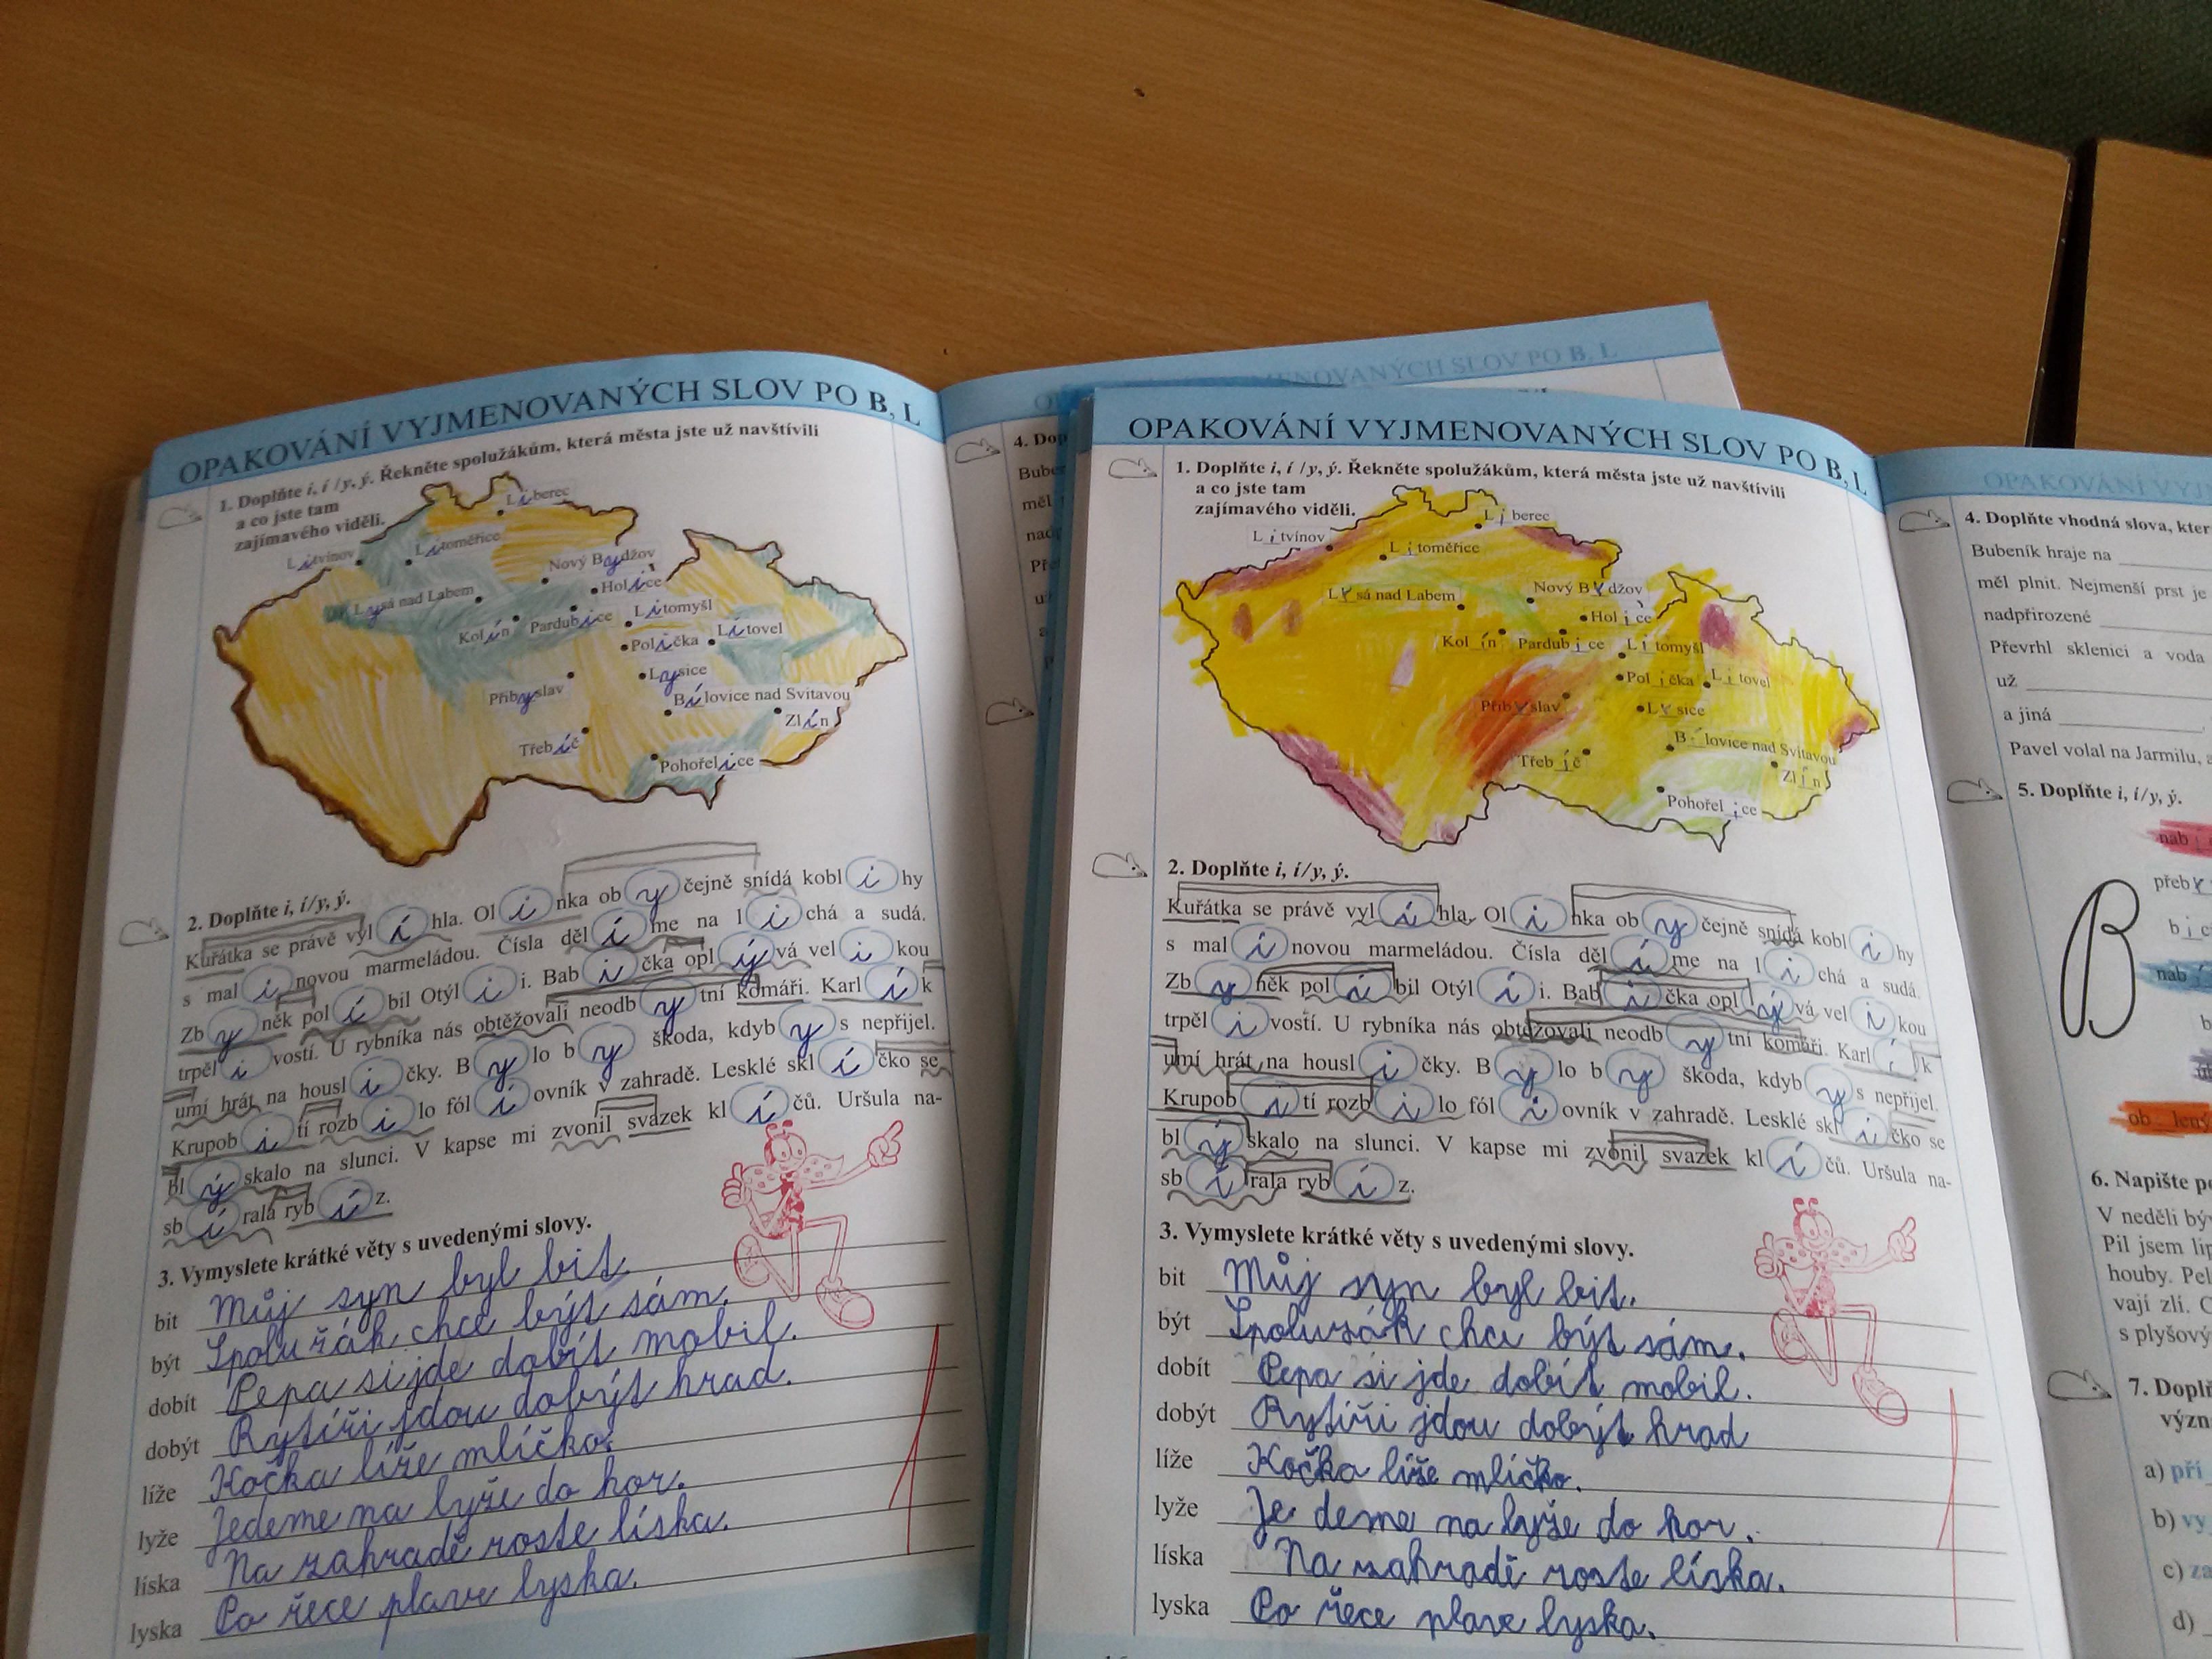 OPAKOVÁNÍ VYJMENOVANÝCH SLOV PO B, L
1. Doplňte i, í /y, ý. Řekněte spolužákům, která města jste už navštívili
a co jste tam
zajímavého viděli.
Liberec
Litvínov
Litoměřice
Nový Bydžov
Lysá nad Labem
Holice
Kolín
Pardubice
Litomyšl
Polička
Litovel
Lysice
Přibyslav
Bílovice nad Svitavou
Zlín
Třebíč
Pohořelice
2. Doplňte i, í/y, ý.
Kuřátka se právě vylíhla. Olinka obyčejně snídá koblihy
s malinovou marmeládou. Čísla dělíme na lichá a sudá.
Zbyněk políbil Otýlii. Babička oplývá velikou
trpělivostí. U rybníka nás obtěžovali neodbytní komáři. Karlík
umí hrát na housličky. Bylo by škoda, kdybys nepřijel.
Krupobití rozbilo fóliovník v zahradě. Lesklé sklíčko se
blýskalo na slunci. V kapse mi zvonil svazek klíčů. Uršula na-
sbírala rybíz.
3. Vymyslete krátké věty s uvedenými slovy.
bit Můj syn byl bit.
být Spolužák chce být sám.
dobít Pepa si jde dobít mobil.
dobýt Rytíři jdou dobýt hrad.
líže Kočka líže mlíčko.
lyže Jedeme na lyže do hor.
líska Na zahradě roste líska.
lyska Po řece plave lyska.
1
OPAKOVÁNÍ VYJMENOVANÝCH SLOV PO B, L
4. Dop
Bube
měl
OPAKOVÁNÍ VYJMENOVANÝCH SLOV PO B, L
1. Doplňte i, í /y, ý. Řekněte spolužákům, která města jste už navštívili
a co jste tam
zajímavého viděli.
Liberec
Litvínov
Litoměřice
Nový Bydžov
Lysá nad Labem
Holice
Kolín
Pardubice
Litomyšl
Polička
Litovel
Přibyslav
Lysice
Bílovice nad Svitavou
Třebíč
Zlín
Pohořelice
2. Doplňte i, í/y, ý.
Kuřátka se právě vylíhla. Olinka obyčejně snídá koblihy
s malinovou marmeládou. Čísla dělíme na lichá a sudá.
Zbyněk políbil Otýlii. Babička oplývá velikou
trpělivostí. U rybníka nás obtěžovali neodbytní komáři. Karlík
umí hrát na housličky. Bylo by škoda, kdybys nepřijel.
Krupobití rozbilo fóliovník v zahradě. Lesklé sklíčko se
blýskalo na slunci. V kapse mi zvonil svazek klíčů. Uršula na-
sbírala rybíz.
3. Vymyslete krátké věty s uvedenými slovy.
bit Můj syn byl bit.
být Spolužák chce být sám.
dobít Pepa si jde dobít mobil.
dobýt Rytíři jdou dobýt hrad
líže Kočka líže mlíčko.
lyže Je deme na lyže do hor.
líska Na zahradě roste líska.
lyska Po řece plave lyska.
1
4. Doplňte vhodná slova, kter
Bubeník hraje na
měl plnit. Nejmenší prst je
nadpřirozené
Převrhl sklenici a voda
už
a jiná
Pavel volal na Jarmilu, a
5. Doplňte i, í/y, ý.
B
6. Napište po
V neděli bý
Pil jsem lip
houby. Pel
vají zlí. C
s plyšový
7. Dopl
význ
a) pří
b) vy
c) za
d)